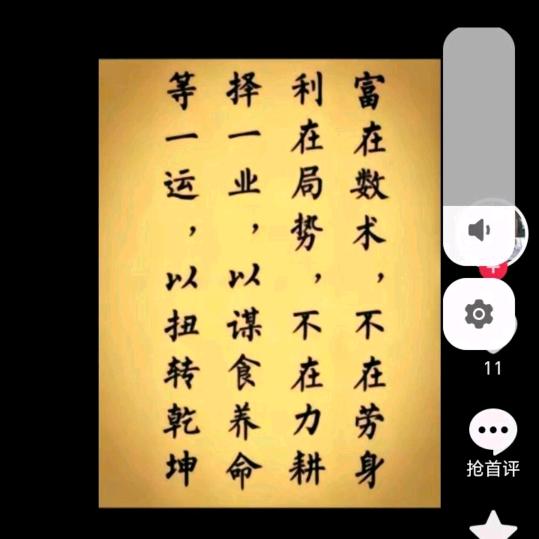 富在数术，不在劳身
利在局势，不在力耕
择一业，以谋食养命
等一运，以扭转乾坤
11
抢首评